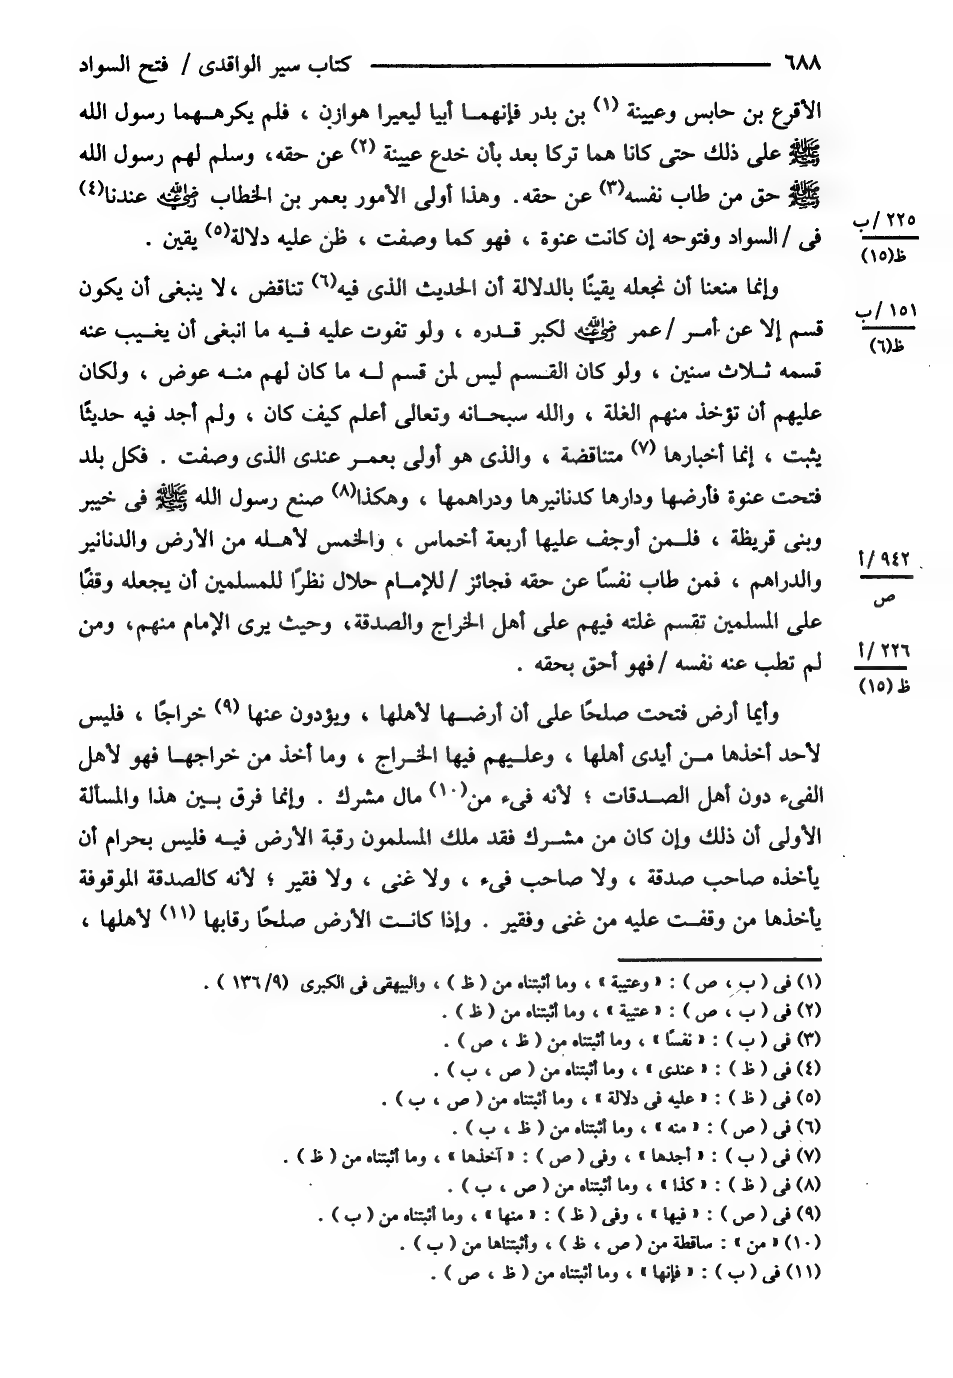 ٦٨٨ كتاب سير الواقدى / فتح السواد
الأقرع بن حابس وعيينة (١) بن بدر فإنهمـا أبيا ليعيرا هوازن ، فلم يكرهـهما رسول الله
ﷺ على ذلك حتى كانا هما تركا بعد بأن خدع عيينة (٢) عن حقه، وسلم لهم رسول الله
ﷺ حق من طاب نفسه(٣) عن حقه. وهذا أولى الأمور بعمر بن الخطاب رضي الله عنه عندنا(٤)
فى / السواد وفتوحه إن كانت عنوة ، فهو كما وصفت ، ظن عليه دلالة(٥) يقين .
٢٢٥ /ب
ظ(١٥)
وإنما منعنا أن نجعله يقينًا بالدلالة أن الحديث الذى فيه(٦) تناقض ،لا ينبغى أن يكون
قسم إلا عن أمـر / عمر رضي الله عنه لكبر قـدره ، ولو تفوت عليه فـيه ما انبغى أن يغـيب عنه
١٥١ /ب
ظ(٦)
قسمه ثـلاث سنين ، ولو كان القـسم ليس لمن قسم لـه ما كان لهم منـه عوض ، ولكان
عليهم أن تؤخذ منهم الغلة ، والله سبحـانه وتعالى أعلم كيف كان ، ولم أجد فيه حديثًا
يثبت ، إنما أخبارها (٧) متناقضة ، والذى هو أولى بعمـر عندى الذى وصفت . فكل بلد
فتحت عنوة فأرضها ودارها كدنانيرها ودراهمها ، وهكذا(٨) صنع رسول الله ﷺ فى خيبر
وبنى قريظة ، فلـمن أوجف عليها أربعة أخماس ، والخمس لأهـله من الأرض والدنانير
والدراهم ، فمن طاب نفسًا عن حقه فجائز / للإمـام حلال نظرًا للمسلمين أن يجعله وقفًا
٩٤٢ /أ
ص
على المسلمين تقسم غلته فيهم على أهل الخراج والصدقة، وحيث يرى الإمام منهم، ومن
لم تطب عنه نفسه / فهو أحق بحقه .
٢٢٦ /أ
ظ (١٥)
وأيما أرض فتحت صلحًا على أن أرضـها لأهلها ، ويؤدون عنها (٩) خراجًا ، فليس
لأحد أخذها مـن أيدى أهلها ، وعلـيهم فيها الخـراج ، وما أخذ من خراجهـا فهو لأهل
الفىء دون أهل الصـدقات ؛ لأنه فىء من(١٠) مال مشرك . وإنما فرق بـين هذا والمسألة
الأولى أن ذلك وإن كان من مشـرك فقد ملك المسلمون رقبة الأرض فيـه فليس بحرام أن
يأخذه صاحب صدقة ، ولا صاحب فىء ، ولا غنى ، ولا فقير ؛ لأنه كالصدقة الموقوفة
يأخذها من وقفـت عليه من غنى وفقير . وإذا كانـت الأرض صلحًا رقابها (١١) لأهلها ،
(١) فى ( ب ، ص ) : « وعتيبة » ، وما أثبتناه من ( ظ ) ، والبيهقى فى الكبرى (٩/ ١٣٦ ) .
(٢) فى ( ب ، ص ) : « عتيبة » ، وما أثبتناه من ( ظ ) .
(٣) فى ( ب ) : « نفسًا » ، وما أثبتناه من ( ظ ، ص ) .
(٤) فى ( ظ ) : « عندى » ، وما أثبتناه من ( ص ، ب ) .
(٥) فى ( ظ ) : « عليه فى دلالة » ، وما أثبتناه من ( ص ، ب ) .
(٦) فى ( ص ) : « منه » ، وما أثبتناه من ( ظ ، ب ) .
(٧) فى ( ب ) : « أجدها » ، وفى ( ص ) : « آخذها » ، وما أثبتناه من ( ظ ) .
(٨) فى ( ظ ) : « كذا » ، وما أثبتناه من ( ص ، ب ) .
(٩) فى ( ص ) : « فيها » ، وفى ( ظ ) : « منها » ، وما أثبتناه من ( ب ) .
(١٠) « من » : ساقطة من ( ص ، ظ ) ، وأثبتناها من ( ب ) .
(١١) فى ( ب ) : « فإنها » ، وما أثبتناه من ( ظ ، ص ) .